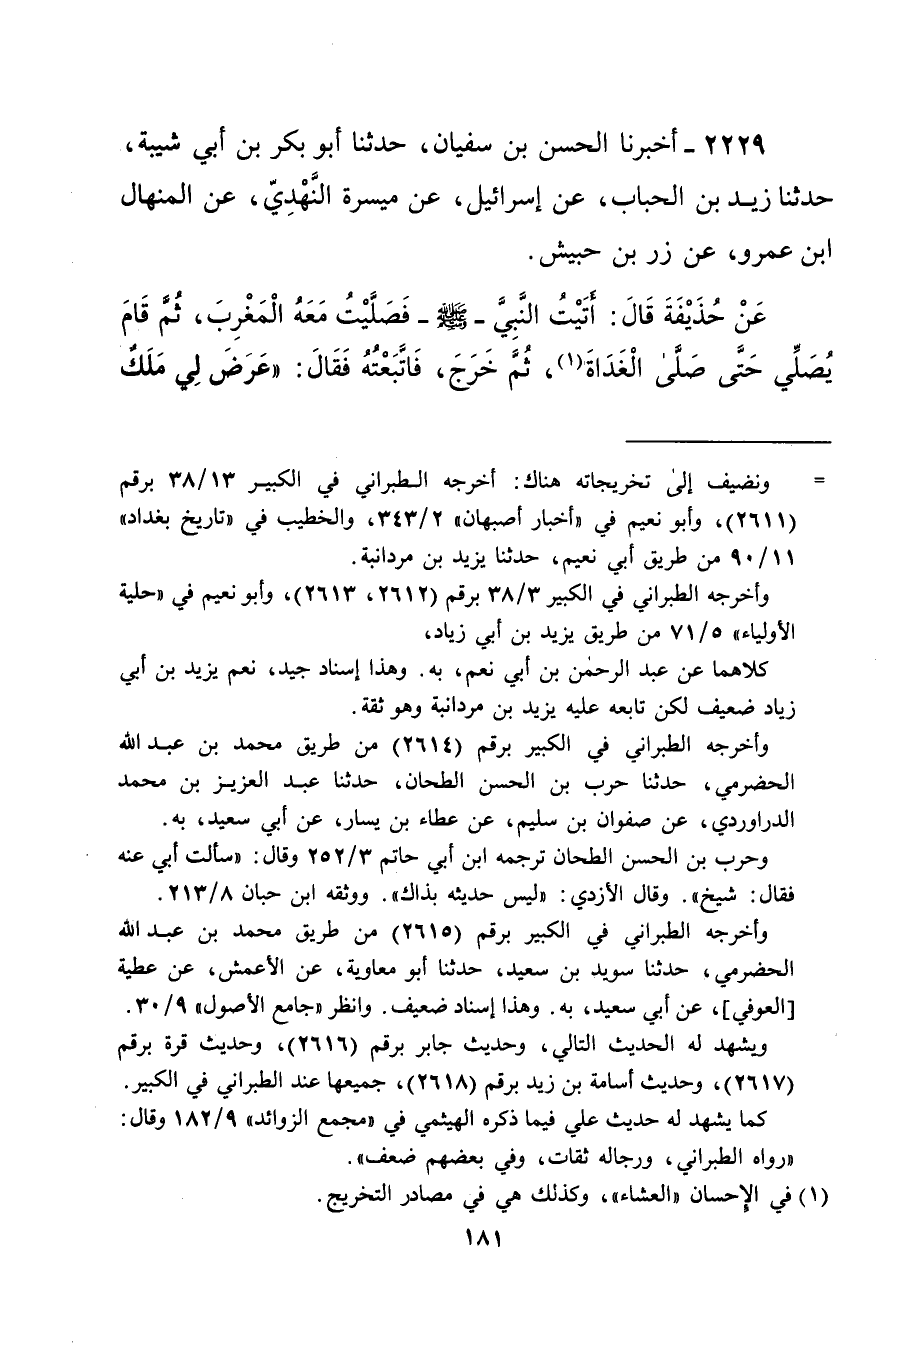 ٢٢٢٩ ـ أخبرنا الحسن بن سفيان، حدثنا أبو بكر بن أبي شيبة،
حدثنا زيد بن الحباب، عن إسرائيل، عن ميسرة النَّهْدِيّ، عن المنهال
ابن عمرو، عن زر بن حبيش.
عَنْ حُذَيْفَةَ قَالَ: أَتَيْتُ النَّبِيَّ ـ ﷺ ـ فَصَلَّيْتُ مَعَهُ الْمَغْرِبَ، ثُمَّ قَامَ
يُصَلِّي حَتَّى صَلَّىٰ الْغَدَاةَ(١)، ثُمَّ خَرَجَ، فَاتَّبَعْتُهُ فَقَالَ: «عَرَضَ لِي مَلَكٌ
= ونضيف إلىٰ تخريجاته هناك: أخرجه الطبراني في الكبير ٣٨/١٣ برقم
(٢٦١١)، وأبو نعيم في «أخبار أصبهان» ٣٤٣/٢، والخطيب في «تاريخ بغداد»
٩٠/١١ من طريق أبي نعيم، حدثنا يزيد بن مردانبة.
وأخرجه الطبراني في الكبير ٣٨/٣ برقم (٢٦١٢، ٢٦١٣)، وأبو نعيم في «حلية
الأولياء» ٧١/٥ من طريق يزيد بن أبي زياد،
كلاهما عن عبد الرحمٰن بن أبي نعم، به. وهذا إسناد جيد، نعم يزيد بن أبي
زياد ضعيف لكن تابعه عليه يزيد بن مردانبة وهو ثقة.
وأخرجه الطبراني في الكبير برقم (٢٦١٤) من طريق محمد بن عبد الله
الحضرمي، حدثنا حرب بن الحسن الطحان، حدثنا عبد العزيز بن محمد
الدراوردي، عن صفوان بن سليم، عن عطاء بن يسار، عن أبي سعيد، به.
وحرب بن الحسن الطحان ترجمه ابن أبي حاتم ٢٥٢/٣ وقال: «سألت أبي عنه
فقال: شيخ». وقال الأزدي: «ليس حديثه بذاك». ووثقه ابن حبان ٢١٣/٨.
وأخرجه الطبراني في الكبير برقم (٢٦١٥) من طريق محمد بن عبد الله
الحضرمي، حدثنا سويد بن سعيد، حدثنا أبو معاوية، عن الأعمش، عن عطية
[العوفي]، عن أبي سعيد، به. وهذا إسناد ضعيف. وانظر «جامع الأصول» ٣٠/٩.
ويشهد له الحديث التالي، وحديث جابر برقم (٢٦١٦)، وحديث قرة برقم
(٢٦١٧)، وحديث أسامة بن زيد برقم (٢٦١٨)، جميعها عند الطبراني في الكبير.
كما يشهد له حديث علي فيما ذكره الهيثمي في «مجمع الزوائد» ١٨٢/٩ وقال:
«رواه الطبراني، ورجاله ثقات، وفي بعضهم ضعف».
(١) في الإِحسان «العشاء»، وكذلك هي في مصادر التخريج.
١٨١